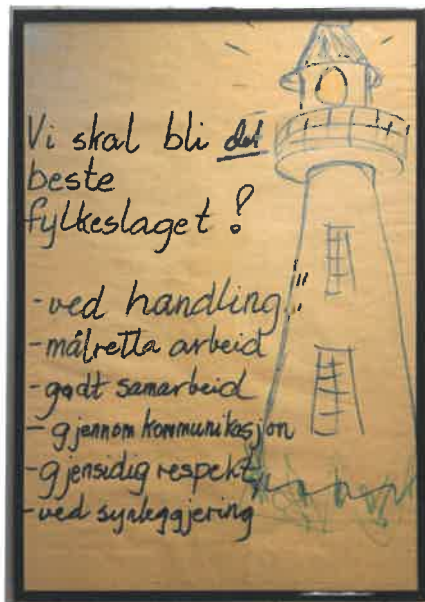 Vi skal bli det
beste
fylkeslaget!
- ved handling
- målretta arbeid
- godt samarbeid
- gjennom kommunikasjon
- gjensidig respekt
- ved synleggjering